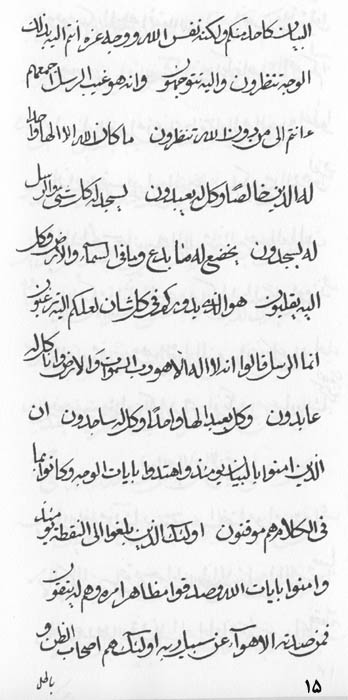 البيان كاحد منكم ولكنه نفس الله ووجه عزه انتم اليه بذلك
الوجه تنظرون واليه تتوجهون وانه هو غيب الرسل اجمعهم
ءانتم الى من دون الله تنظرون ما كان لله الا الها واحدا
له الدين خالصا وكل له يعبدون يسجد له كل شئ والرسل
له يسجدون يخضع له ما بدع وما في السماء والارض وكل
اليه يقلبون هو الذي يدرككم في كل شان لعلكم اليه ترغبون
انما الرسل قالوا انه لا اله الا هو رب السموات والارض وانا كل له
عابدون وكل يعبد الها واحدا وكل له ساجدون ان
الذين امنوا بالبيان يومئذ واهتدوا بايات الوجه وكانوا بما
في الكلام هم موقنون اولئك الذين بلغوا الى النقطة يومئذ
وامنوا بايات الله وصدقوا مظاهر امره وهم له يتقون
فمن صدته الاهواء عن سبيل ربه اولئك هم اصحاب الظن و
١٥